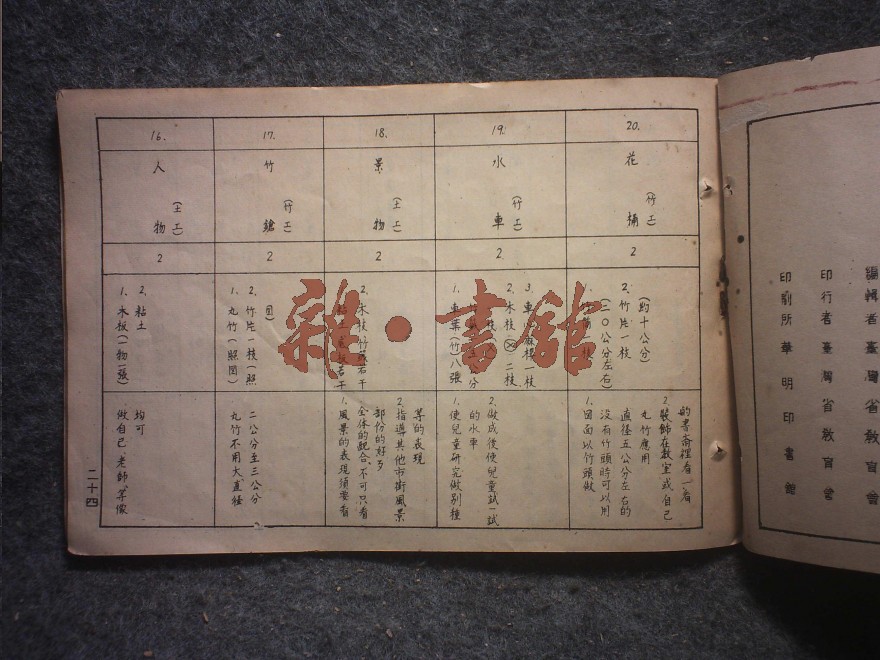 20.
花桶
(竹工)
2
(約十公分)
2. 竹片一枝
(二〇公分左右)
的書斋裡看一看
2. 裝飾在教室或自己
丸竹應用
直徑五公分左右的
沒有竹頭時可以用
1. 図面以竹頭做
19.
水車
(竹工)
2.
3. 車
麻桿一枝
2. 木枝
二枝
公分
1. 車葉(竹)八張
2. 做成後使兒童試一試
的水車
1. 使兒童研究做别種
18.
景物
(土工)
2
2. 木枝竹
若干
等的表現
2. 指導其他市街風景
部份的好歹
全体的配合、不可只看
1. 風景的表現須要看
17.
竹鎗
(竹工)
2
図)
2. 竹片一枝(照
1. 丸竹(照図)
二公分至三公分
丸竹不用大、直徑
16.
人物
(土工)
2
2. 粘土
1. 木板(一物一張)
均可
做自己、老師、等像
二十四
雜•書館
編輯者臺灣省教育會
印行者臺灣省教育會
印刷所華明印書館